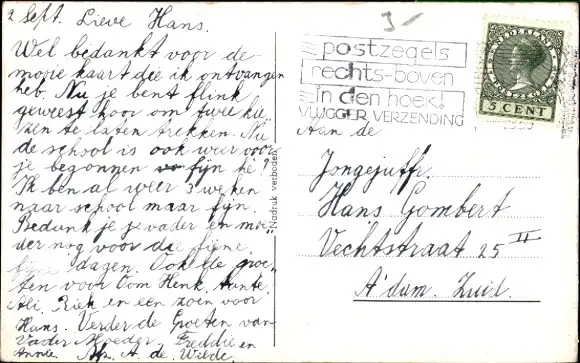 2 Sept. Lieve Hans.
Wel bedankt voor de
mooie kaart die ik ontvangen
heb. Nu je bent flink
geweest hoor om twee kie
zen te laten trekken. Nu
de school is ook weer voor
je begonnen fijn hè?
Ik ben al weer 3 weken
naar school maar fijn.
Bedank je je vader en moe
der nog voor die fijne
fijne dagen. Ook de groe-
ten voor Oom Henk, tante
Ali, Riek en een zoen voor
Hans. Verder de Groeten van
Vader Moeder, Freddie en
Annie A. de Wrede.
Nadruk verboden
postzegels
rechts-boven
in den hoek!
VLUGGER VERZENDING
NEDERLAND
5 CENT
Aan de
Jongejuffr.
Hans Gombert
Vechtstraat 25 II
A'dam. Zuid.